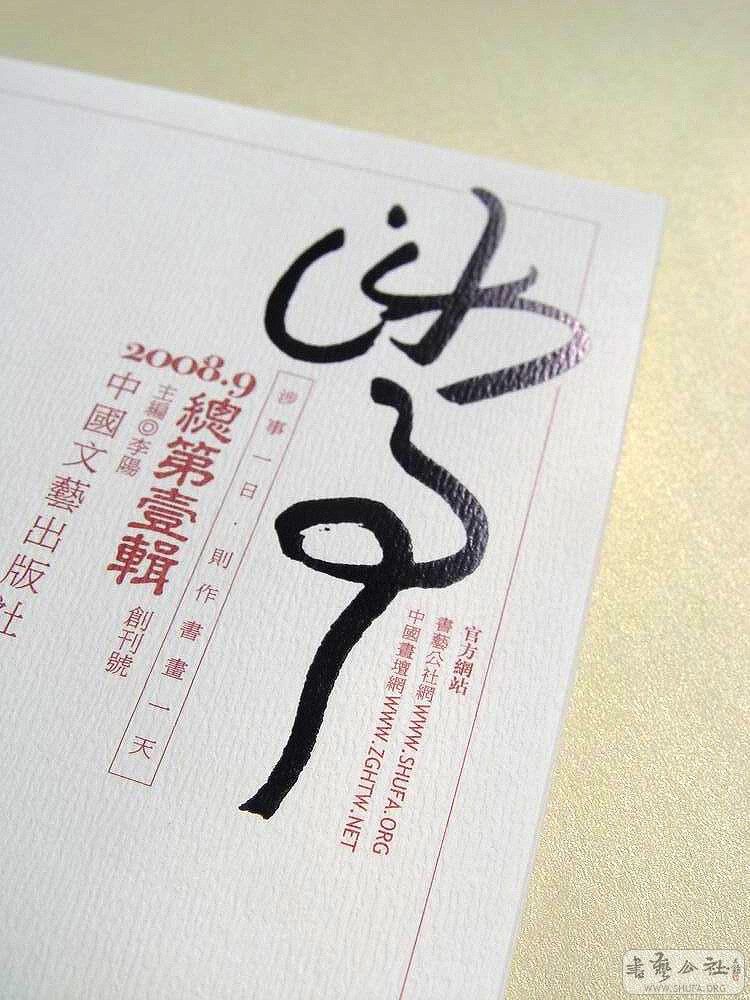 涉事
官方網站
書藝公社網WWW.SHUFA.ORG
中國畫壇網WWW.ZGHTW.NET
涉事一日·則作書畫一天
2008.9
總第壹輯
創刊號
主編◎李陽
中國文藝出版社
書藝公社
WWW.SHUFA.ORG